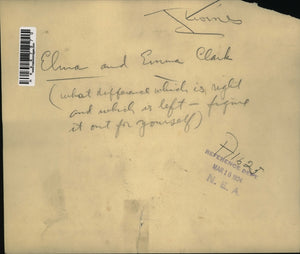 Elma and Emma Clark
(what difference which is right
and which is left — figure
it out for yourself)
REFERENCE DEPT.
MAR 18 1924
N. E. A.